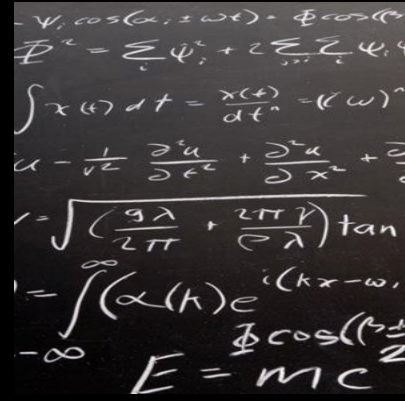 - Ψ. cos(α. ± ωt) = Φcos(β
Φ² = Σ_i ψ_i² + 2 Σ_{j>i} Σ_i ψ_i ψ
∫ x(t) dt = x(t)/dtⁿ = (i ω)ⁿ
u - 1/v² ∂²u/∂t² + ∂²u/∂x² + ∂
= √(gλ/2π + 2πγ/ρλ) tan
) = ∫_{-∞}^{∞} (α(k)e^{i(kx-ω,
Φcos((β± 2
E = mc